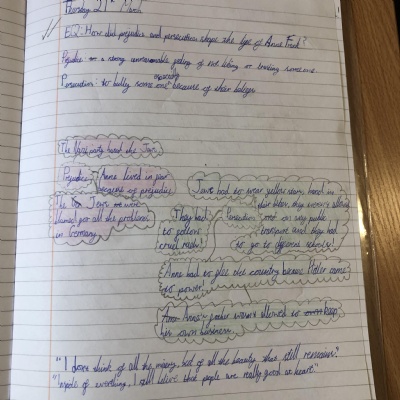 21st March
EQ: How did prejudice and persecution shape the life of Anne Frank?
Prejudice: a strong unreasonable feeling of not liking or trusting someone
Persecution: to bully someone because of their beliefs
The Nazi party hated the Jews.
Prejudice Anne lived in fear
because of prejudice
The Jews were
blamed for all the problems
in Germany.
They had
to follow
cruel rules!
Jews had to wear yellow stars, hand in
their bikes, they weren't allowed
Persecution on any public
transport and they had
to go to different schools!
Anne had to flee the country because Hitler came
to power!
Anne's father wasn't allowed to keep
his own business.
"I don't think of all the misery, but of all the beauty that still remains."
"Inspite of everything, I still believe that people are really good at heart"